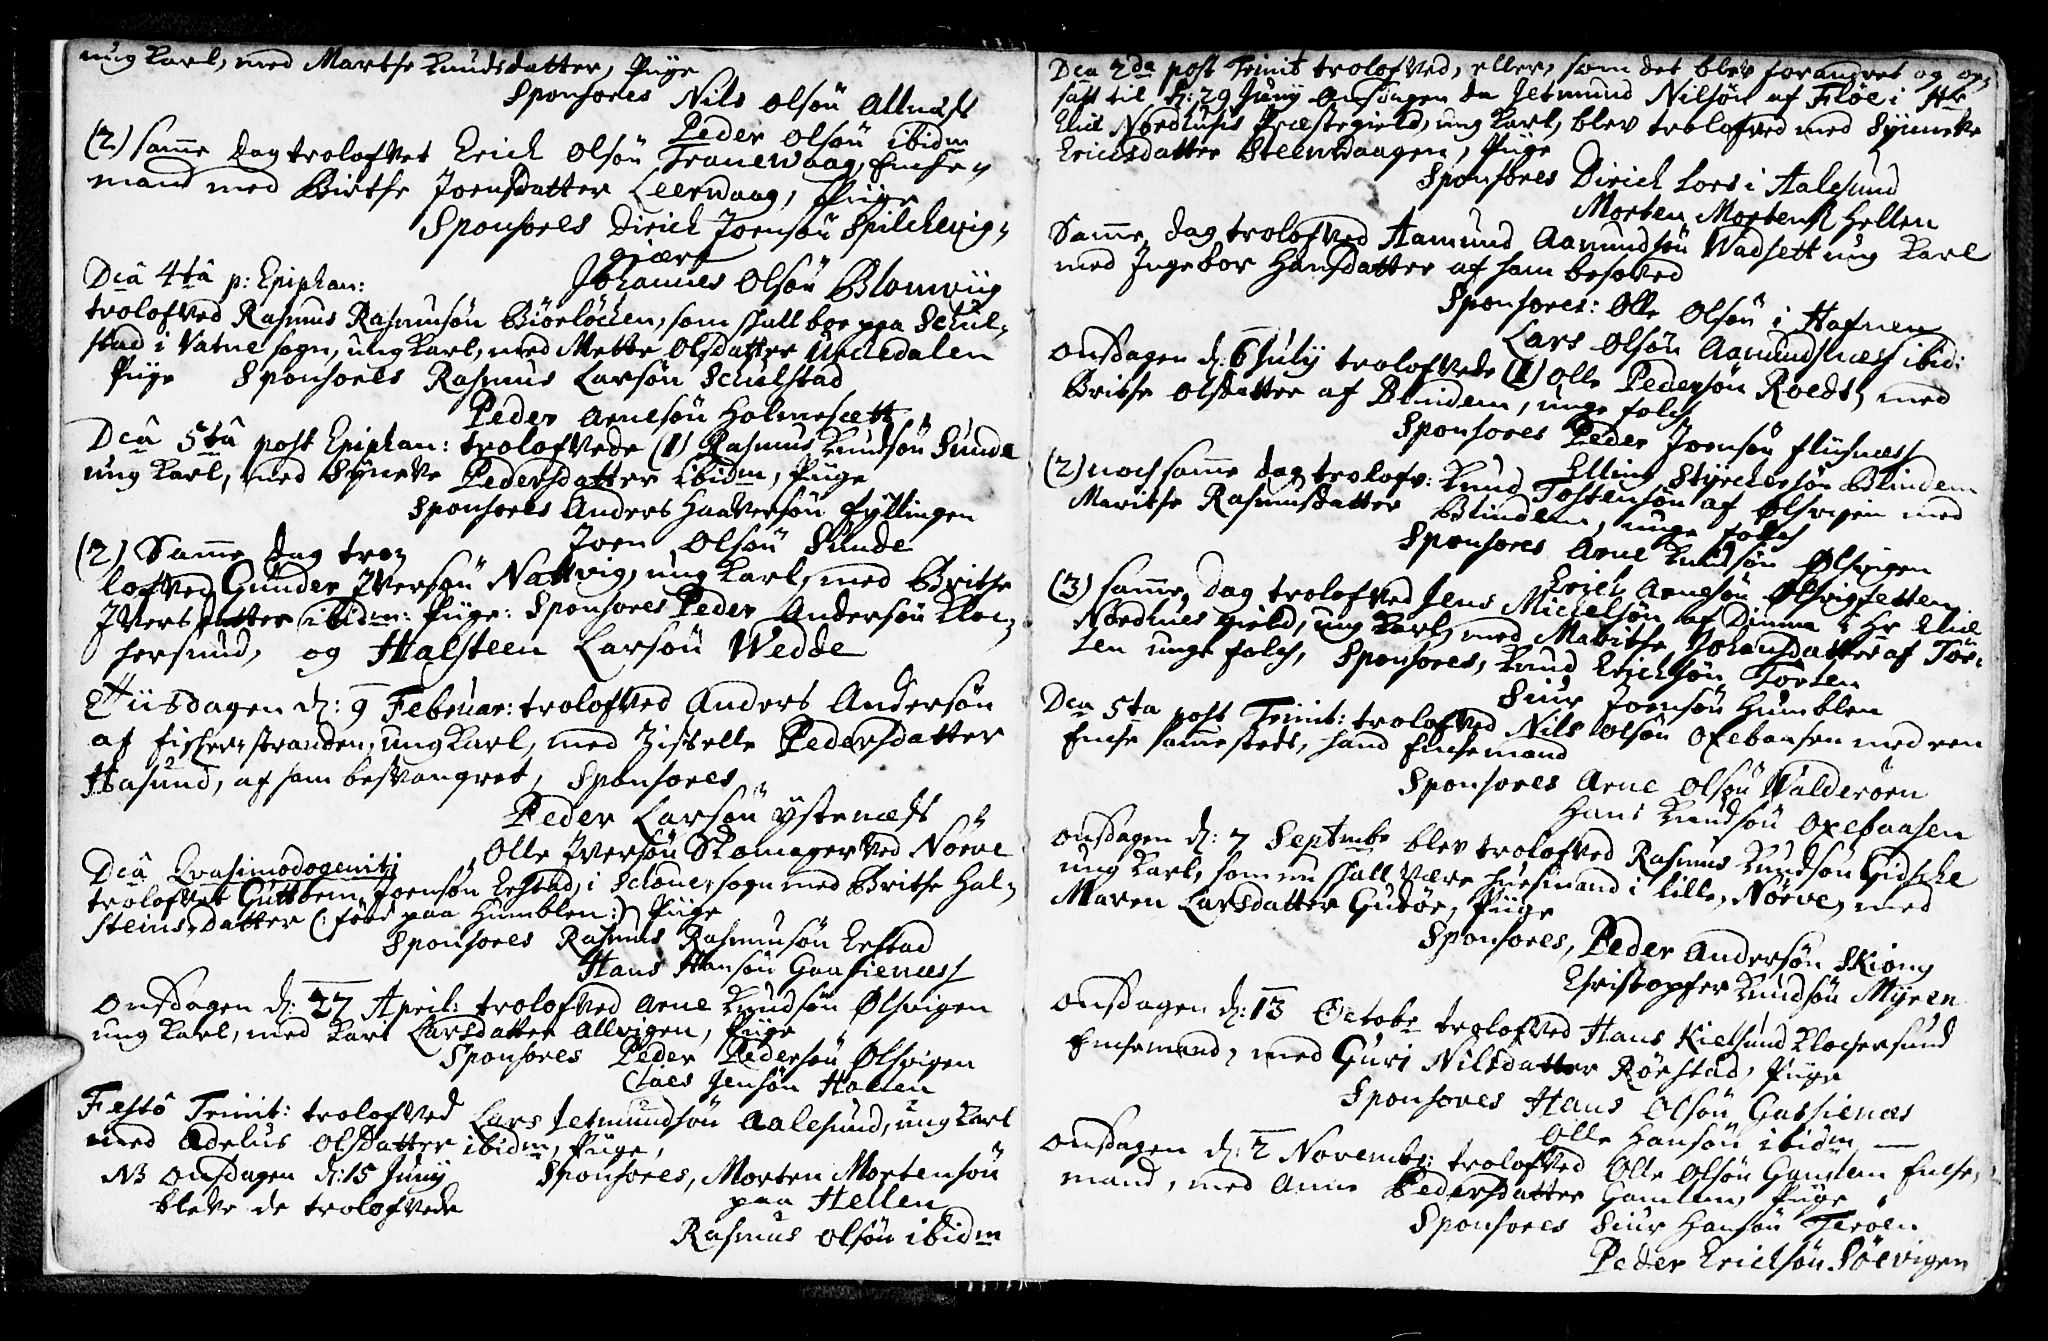 ung Karl, med Marthe Knudsdatter, Piige
Sponsores Nils Olsøn Alnæss
Peder Olsøn ibidm
(2) samme Dag trolofvet Erich Olsøn Tranewaag, Enche-
mand med Birthe Joensdatter Leerwaag, Piige
Sponsores Dirich Joensøn Spilchevig-
giære
Johannes Olsøn Blomviig
Dca 4ta p: Epiphan:
trolofved Rasmus Rasmusøn Biørløcken, som skall boe paa Schul-
stad i Vatne sogn, ung Karl, med Mette Olsdatter Uresdalen
Piige Sponsores Rasmus Larsøn Schulstad
Peder Arnesøn Holmesætt
Dca 5ta post Epiphan: trolofvede (1) Rasmus Knudsøn Sunde
ung Karl, med Synneve Pedersdatter ibidm, Piige
Sponsores Anders Haaversøn Fyllingen
Joen Olsøn Sunde
(2) Samme Dag tro-
lofved Gunder Iversøn Nattvig, ung Karl, med Brithe
Iversdatter ibidm: Piige: Sponsores Peder Andersøn Kloc-
hersund, og Halsteen Larsøn Wedde
Tiisdagen d: 9 Februar: trolofved Anders Andersøn
af Fischerstranden, ung Karl, med Zisselle Pedersdatter
Hasund, af ham besvangret, Sponsores
Peder Larsøn Ystenæss
Olle Iversøn Skomager ved Nørve
Dca Qvasimodogeniti
trolofvet Guttorm Joensøn Erstad, i Schoue sogn med Brithe Hal-
steinsdatter (: föed paa Humblen:) Piige
Sponsores Rasmus Rasmusøn Erstad
Hans Hansøn Gaasienæss
Onsdagen d: 27 April: trolofved Arne Knudsøn Ølsvigen
ung Karl, med Kari Larsdatter Allvigen, Piige
Sponsores Peder Pedersøn Ølsvigen
Claes Jensøn Hanen
Festo Trinit: trolofved Lars Jetmundsøn Aalesund, ung Karl
med Adelus Olsdatter ibidm, Piige,
NB Onsdagen d: 15 Junij Sponsores, Morten Mortensøn
bleve de trolofvede paa Hellen
Rasmus Olsøn ibidm
Dca 2da post Trinit trolofved, eller, som det blev forandret og op-
satt til d: 29 Junij Onsdagen da Jetmund Nilsøn af Fløe i Hr
Elie Nordhusis Præstegield, ung Karl, blev trolofved med Synneve
Erichsdatter Steenvaagen, Piige
Sponsores Dirich Lors i Aalesund
Morten Mortens Hellen
Samme Dag trolofved Aamund Aamundsøn Wadsett ung Karl
med Ingebor Hansdatter af ham besoved
Sponsores: Olle Olsøn i Hafnen
Lars Olsøn Aamundsnæss ibid:
Onsdagen d: 6 Julij trolofvede (1) Olle Pedersøn Roedt, med
Brithe Olsdatter af Blindem, unge folch
Sponsores Peder Joensøn Flüsnæss
Elling Styrchersøn Blindem
(2) noch samme dag trolofv: Knud Tostensøn af Ølsvigen med
Marithe Rasmusdatter Blindem, unge folch
Sponsores Arne Knudsøn Ølsvigen
Erich Arnesøn Ølsvigsetten
(3) samme dag trolofved Jens Michelsøn af Dimma i Hr Elie
Nordhues gield, ung Karl, med Marithe Johansdatter af Tør-
len unge folch, Sponsores, Knud Erichsøn Tørlen
Siur Joensøn Humblen
Dca 5ta post Trinit: trolofved Nils Olsøn Oxebaasen med een
Enche sammesteds, hand Enchemand
Sponsores Arne Olsøn Walderøen
Hans Knudsøn Oxebaasen
Onsdagen d: 7 Septmbr blev trolofved Rasmus Knudsøn Gidsche
ung Karl, som nu skall være huusmand i lille Nørve, med
Maren Larsdatter Gudøe, Piige
Sponsores, Peder Andersøn Skiong
Christopher Knudsøn Myren
Onsdagen d: 13 Octobr trolofved Hans Kielsund Klochersund
Enchemand, med Guri Nilsdatter Rørstad, Piige
Sponsores Hans Olsøn Gassienæs
Olle Hansøn ibidm
Onsdagen d: 2 Novembr: trolofved Olle Olsøn Gamlem Enche-
mand, med Anne Pedersdatter Gamlem, Piige
Sponsores Siur Hansøn Terøen
Peder Erichsøn Søevigen